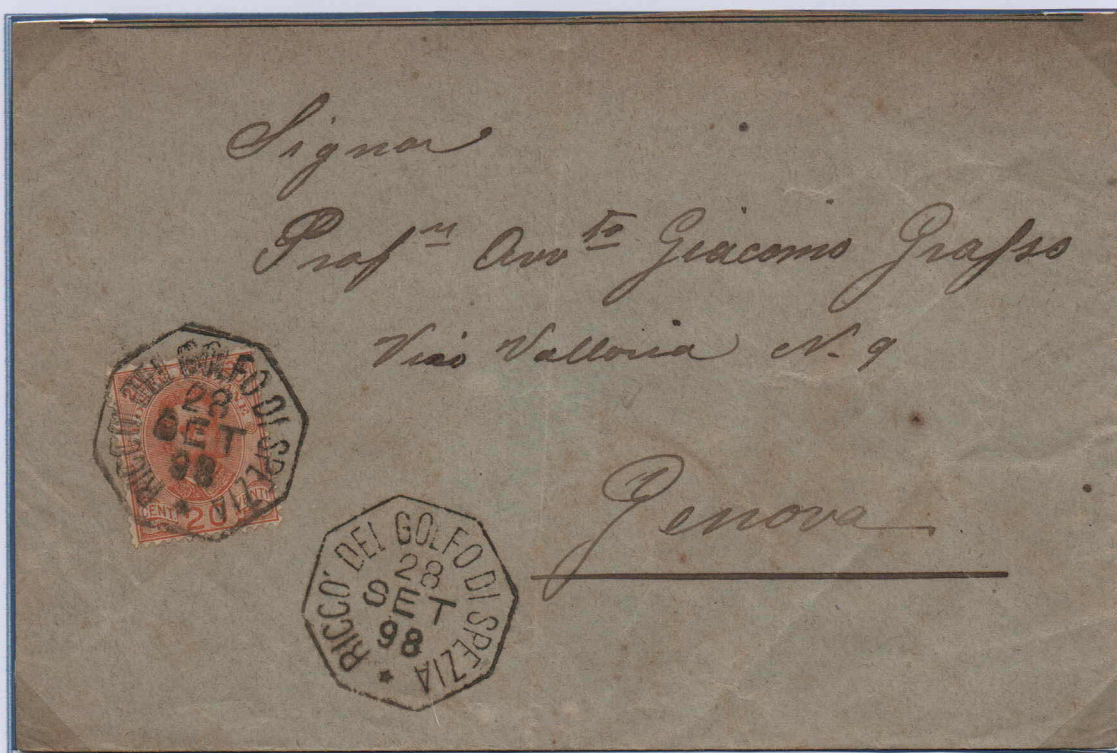 Signor
Prof.re Avv.to Giacomo Grasso
Vico Valloria N. 9
Genova
RICCO' DEL GOLFO DI SPEZIA
28
SET
98
CENT. 20 VENTI
RICCO' DEL GOLFO DI SPEZIA
28
SET
98